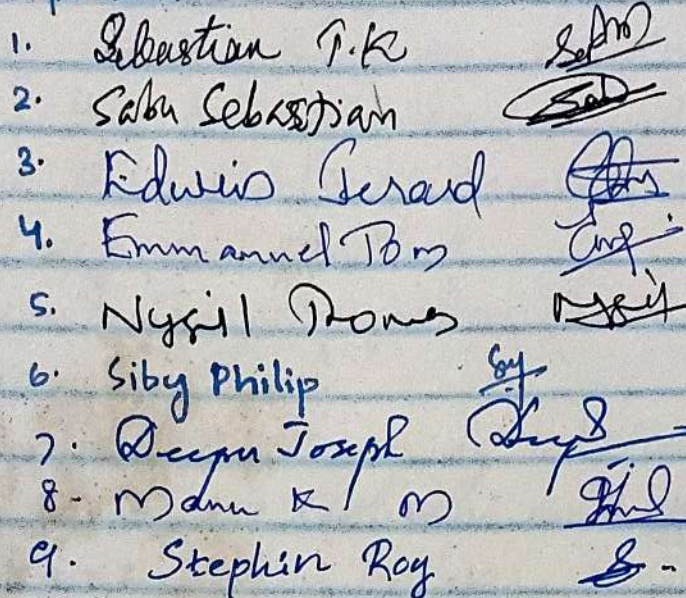 1. Sebastian T.K
2. Sabu Sebastian
3. Edwin Gerard
4. Emmanuel Tom
5. Nygil Thomas
6. Siby Philip Sy
7. Deepu Joseph
8- Manu K M
9. Stephin Roy